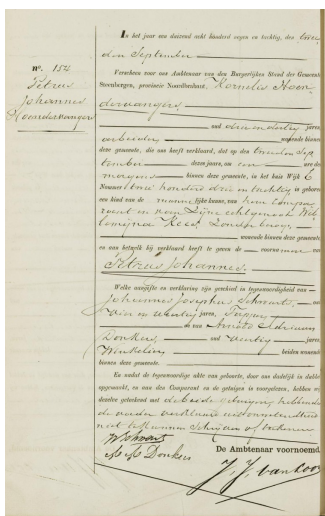 nº. 154
Petrus
Johannes
In het jaar een duizend acht honderd negen en tachtig, den twee
den September
Verscheen voor ons Ambtenaar van den Burgerlijken Stand der Gemeente
Steenbergen, provincie Noordbrabant, Kornelis
oud jaren,
arbeider, wonende binnen
deze gemeente, die ons heeft verklaard, dat op den Sep
tember dezes jaars, om een ure des
morgens binnen deze gemeente, in het huis Wijk C
Nummer twee honderd drie en tachtig is geboren
een kind van de mannelijke kunne, van hem Compa
rant en van zijne echtgenoot Wil
lemijna
wonende binnen deze gemeente
en aan hetwelk hij verklaard heeft te geven de voornamen van
Petrus Johannes.
Welke aangifte en verklaring zijn geschied in tegenwoordigheid van
Johannes Josephus oud
vier en veertig jaren, Tapper
en van Adriaan
Donkers, oud veertig jaren,
Winkelier, beiden wonende
binnen deze gemeente.
En nadat de tegenwoordige akte van geboorte, door ons dadelijk in dubbel
opgemaakt, en aan den Comparant en de getuigen is voorgelezen, hebben
dezelve geteekend met de beide getuigen, hebbende
de vader verklaard uit onwetendheid
niet te kunnen schrijven of teekenen
Donkers
De Ambtenaar voornoemd,